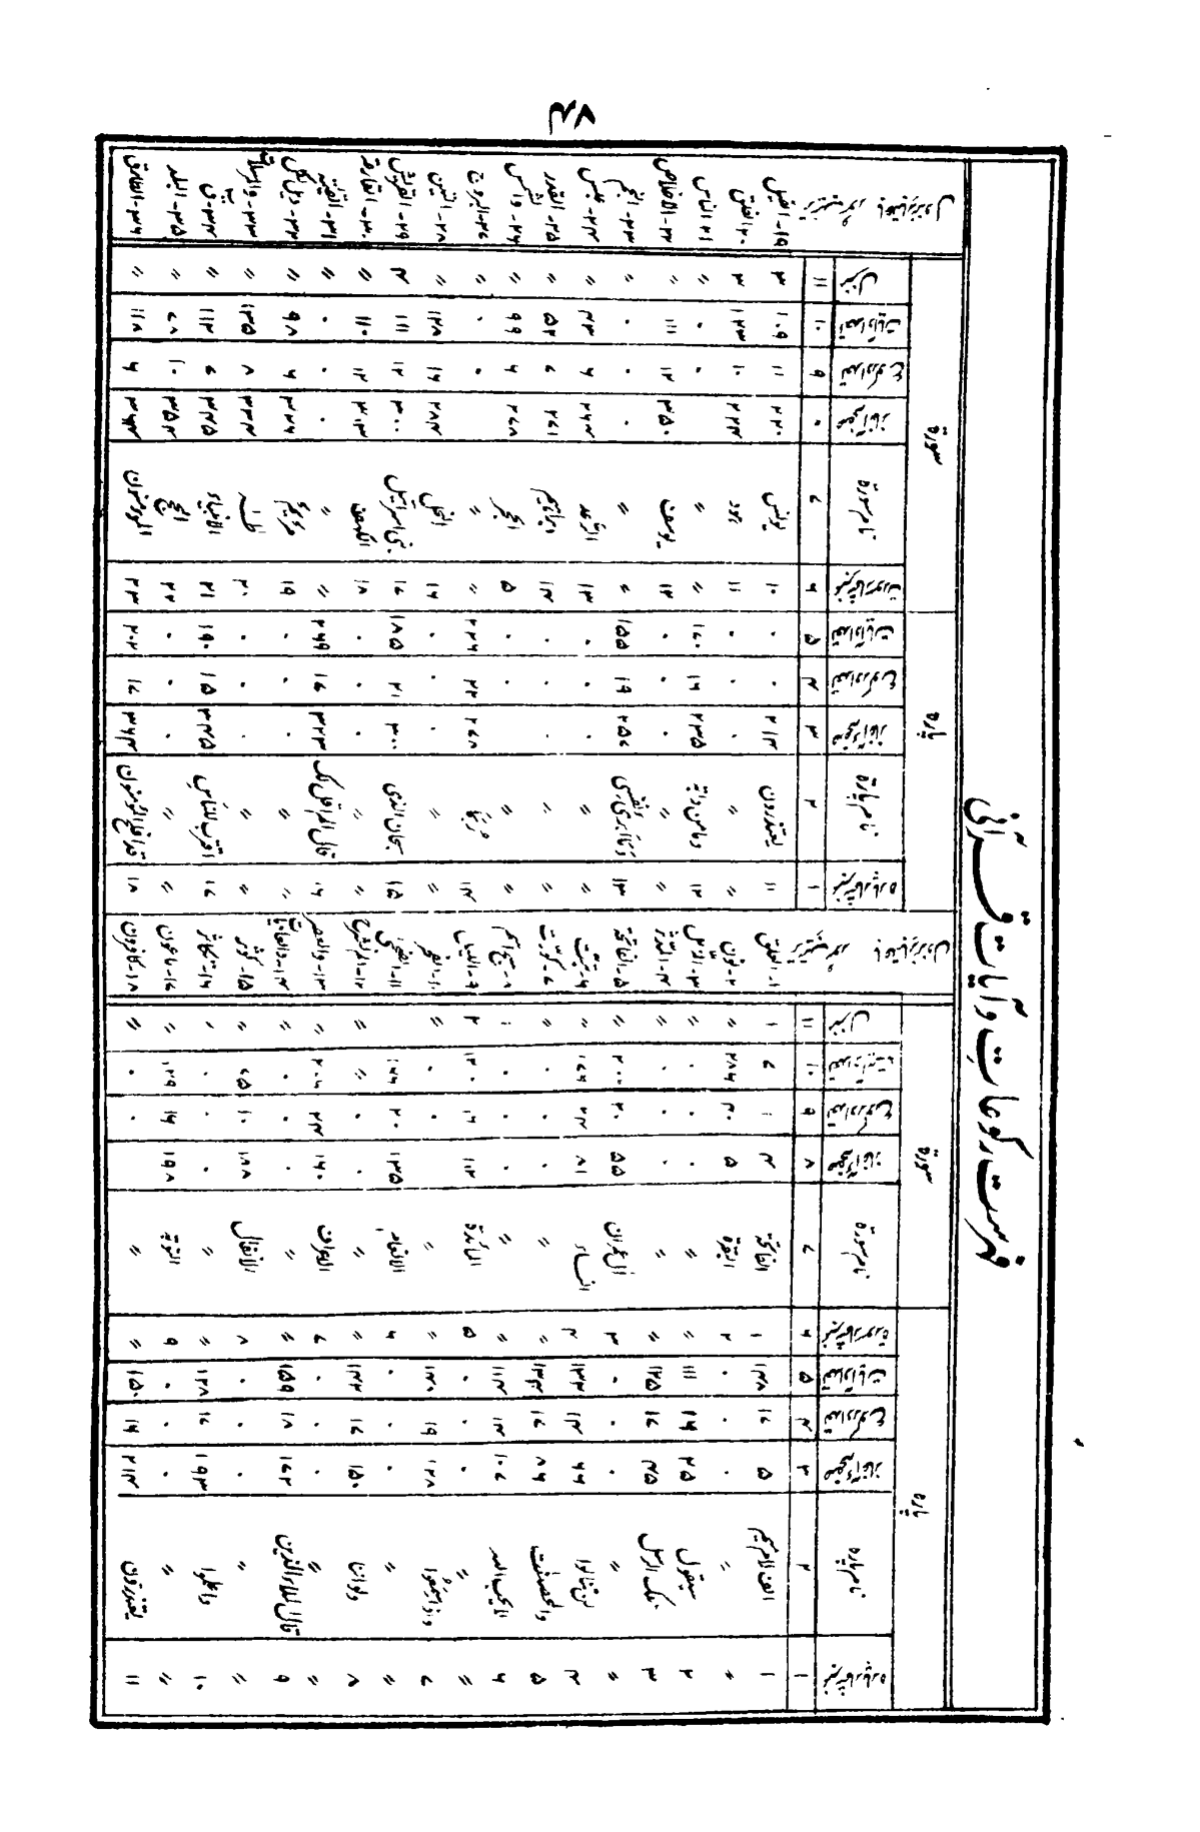 ۴۸
فہرست رکوعات و آیات قرآنی
پارہ سورۃ باعتبار نزول
نمبر شمار پارہ نام پارہ صفحہ آغاز تعداد رکوع تعداد آیات نمبر شمار سورۃ نام سورۃ صفحہ آغاز تعداد رکوع تعداد آیات منزل
۱ ۲ ۳ ۴ ۵ ۶ ۷ ۸ ۹ ۱۰ ۱۱
۱ الف لام میم ۵ ۱۷ ۱۴۸ ۱ الفاتحۃ ۴ ۱ ۷ ۱ ۱-العلق
〃 〃 ۰ ۰ ۰ ۲ البقرۃ ۵ ۴۰ ۲۸۶ 〃 ۲-نون
۲ سیقول ۲۵ ۱۶ ۱۱۱ 〃 〃 ۰ ۰ ۰ 〃 ۳-المزمل
۳ تلک الرسل ۴۵ ۱۷ ۱۲۵ 〃 〃 ۰ ۰ ۰ 〃 ۴-المدثر
〃 〃 ۰ ۰ ۰ ۳ آل عمران ۵۵ ۲۰ ۲۰۰ 〃 ۵-الفاتحۃ
۴ لن تنالوا ۶۶ ۱۴ ۱۳۲ ۴ النساء ۸۱ ۲۴ ۱۷۶ 〃 ۶-تبت
۵ والمحصنٰت ۸۶ ۱۷ ۱۲۴ 〃 〃 ۰ ۰ ۰ 〃 ۷-کورت
۶ لا یحب اللہ ۱۰۷ ۱۴ ۱۱۴ 〃 〃 ۰ ۰ ۰ 〃 ۸-سبح اسم
〃 〃 ۰ ۰ ۰ ۵ المائدۃ ۱۱۲ ۱۶ ۱۲۰ ۲ ۹-اللیل
۷ واذاسمعوا ۱۲۸ ۱۹ ۱۴۰ 〃 〃 ۰ ۰ ۰ 〃 ۱۰-الفجر
〃 〃 ۰ ۰ ۰ ۶ الانعام ۱۳۵ ۲۰ ۱۶۶ ۱۱-الضحی
۸ ولواننا ۱۵۰ ۱۷ ۱۴۲ 〃 〃 ۰ ۰ 〃 〃 ۱۲-الم نشرح
〃 〃 ۰ ۰ ۰ ۷ الاعراف ۱۶۰ ۲۴ ۲۰۶ 〃 ۱۳-والعصر
۹ قال الملاء الذین ۱۷۲ ۱۸ ۱۵۹ 〃 〃 ۰ ۰ ۰ 〃 ۱۴-والعادیات
〃 〃 ۰ ۰ ۰ ۸ الانفال ۱۸۸ ۱۰ ۷۵ 〃 ۱۵-کوثر
۱۰ واعلموا ۱۹۳ ۱۷ ۱۲۸ 〃 〃 ۰ ۰ ۰ 〃 ۱۶-تکاثر
〃 〃 ۰ ۰ ۰ ۹ التوبۃ ۱۹۸ ۱۶ ۱۲۹ 〃 ۱۷-ماعون
۱۱ یعتذرون ۲۱۴ ۱۶ ۱۵۰ 〃 〃 ۰ ۰ ۰ 〃 ۱۸-کافرون
پارہ سورۃ باعتبار نزول
نمبر شمار پارہ نام پارہ صفحہ آغاز تعداد رکوع تعداد آیات نمبر شمار سورۃ نام سورۃ صفحہ آغاز تعداد رکوع تعداد آیات منزل
۱ ۲ ۳ ۴ ۵ ۶ ۷ ۰ ۹ ۱۰ ۱۱
۱۱ یعتذرون ۲۱۴ ۰ ۰ ۱۰ یونس ۲۲۰ ۱۱ ۱۰۹ ۳ ۱۹-الفیل
〃 〃 ۰ ۰ ۰ ۱۱ ہود ۲۳۴ ۱۰ ۱۲۳ ۳ ۲۰-الفلق
۱۲ ومامن دابۃ ۲۳۵ ۱۶ ۱۷۰ 〃 〃 ۰ 〃 ۲۱-الناس
〃 〃 ۰ ۰ ۰ ۱۲ یوسف ۲۵۰ ۱۲ ۱۱۱ 〃 ۲۲-الاخلاص
۱۳ وماابری نفسی ۲۵۷ ۱۹ ۱۵۵ 〃 〃 ۰ ۰ ۰ 〃 ۲۳-النجم
〃 〃 ۰ ۰ ۰ ۱۳ الرعد ۲۶۴ ۶ ۴۳ 〃 ۲۴-عبس
〃 〃 ۰ ۰ ۰ ۱۴ ابراہیم ۲۷۱ ۷ ۵۲ 〃 ۲۵-القدر
〃 〃 ۰ ۰ ۱۵ الحجر ۲۷۸ ۶ ۹۹ 〃 ۲۶-والشمس
۱۴ ربما ۲۷۸ ۲۲ ۲۲۶ 〃 〃 ۰ ۰ 〃 ۲۷-البروج
〃 〃 ۰ ۰ ۰ ۱۶ النحل ۲۸۴ ۱۶ ۱۲۸ 〃 ۲۸-التین
۱۵ سبحان الذی ۳۰۰ ۲۱ ۱۸۵ ۱۷ بنی اسرائیل ۳۰۰ ۱۲ ۱۱۱ ۴ ۲۹-القریش
〃 〃 ۰ ۰ ۰ ۱۸ الکہف ۳۱۳ ۱۲ ۱۱۰ 〃 ۳۰-القارعہ
۱۶ قال الم اقل لک ۳۲۳ ۱۷ ۲۶۹ 〃 〃 ۰ ۰ ۰ 〃 ۳۱-القیٰمۃ
〃 〃 ۰ ۰ ۰ ۱۹ مریم ۳۲۶ ۶ ۹۸ 〃 ۳۲-ویل لکل
〃 〃 ۰ ۰ ۰ ۲۰ طٰہٰ ۳۳۴ ۸ ۱۳۵ 〃 ۳۳-والمرسلات
۱۷ اقترب للناس ۳۴۵ ۱۵ ۱۹۰ ۲۱ الانبیاء ۳۴۵ ۷ ۱۱۲ 〃 ۳۴-ق
〃 〃 ۰ ۰ ۰ ۲۲ الحج ۳۵۴ ۱۰ ۷۸ 〃 ۳۵-البلد
۱۸ قد افلح المومنون ۳۶۴ ۱۷ ۲۰۲ ۲۳ المومنون ۳۶۴ ۶ ۱۱۸ 〃 ۳۶-الطارق